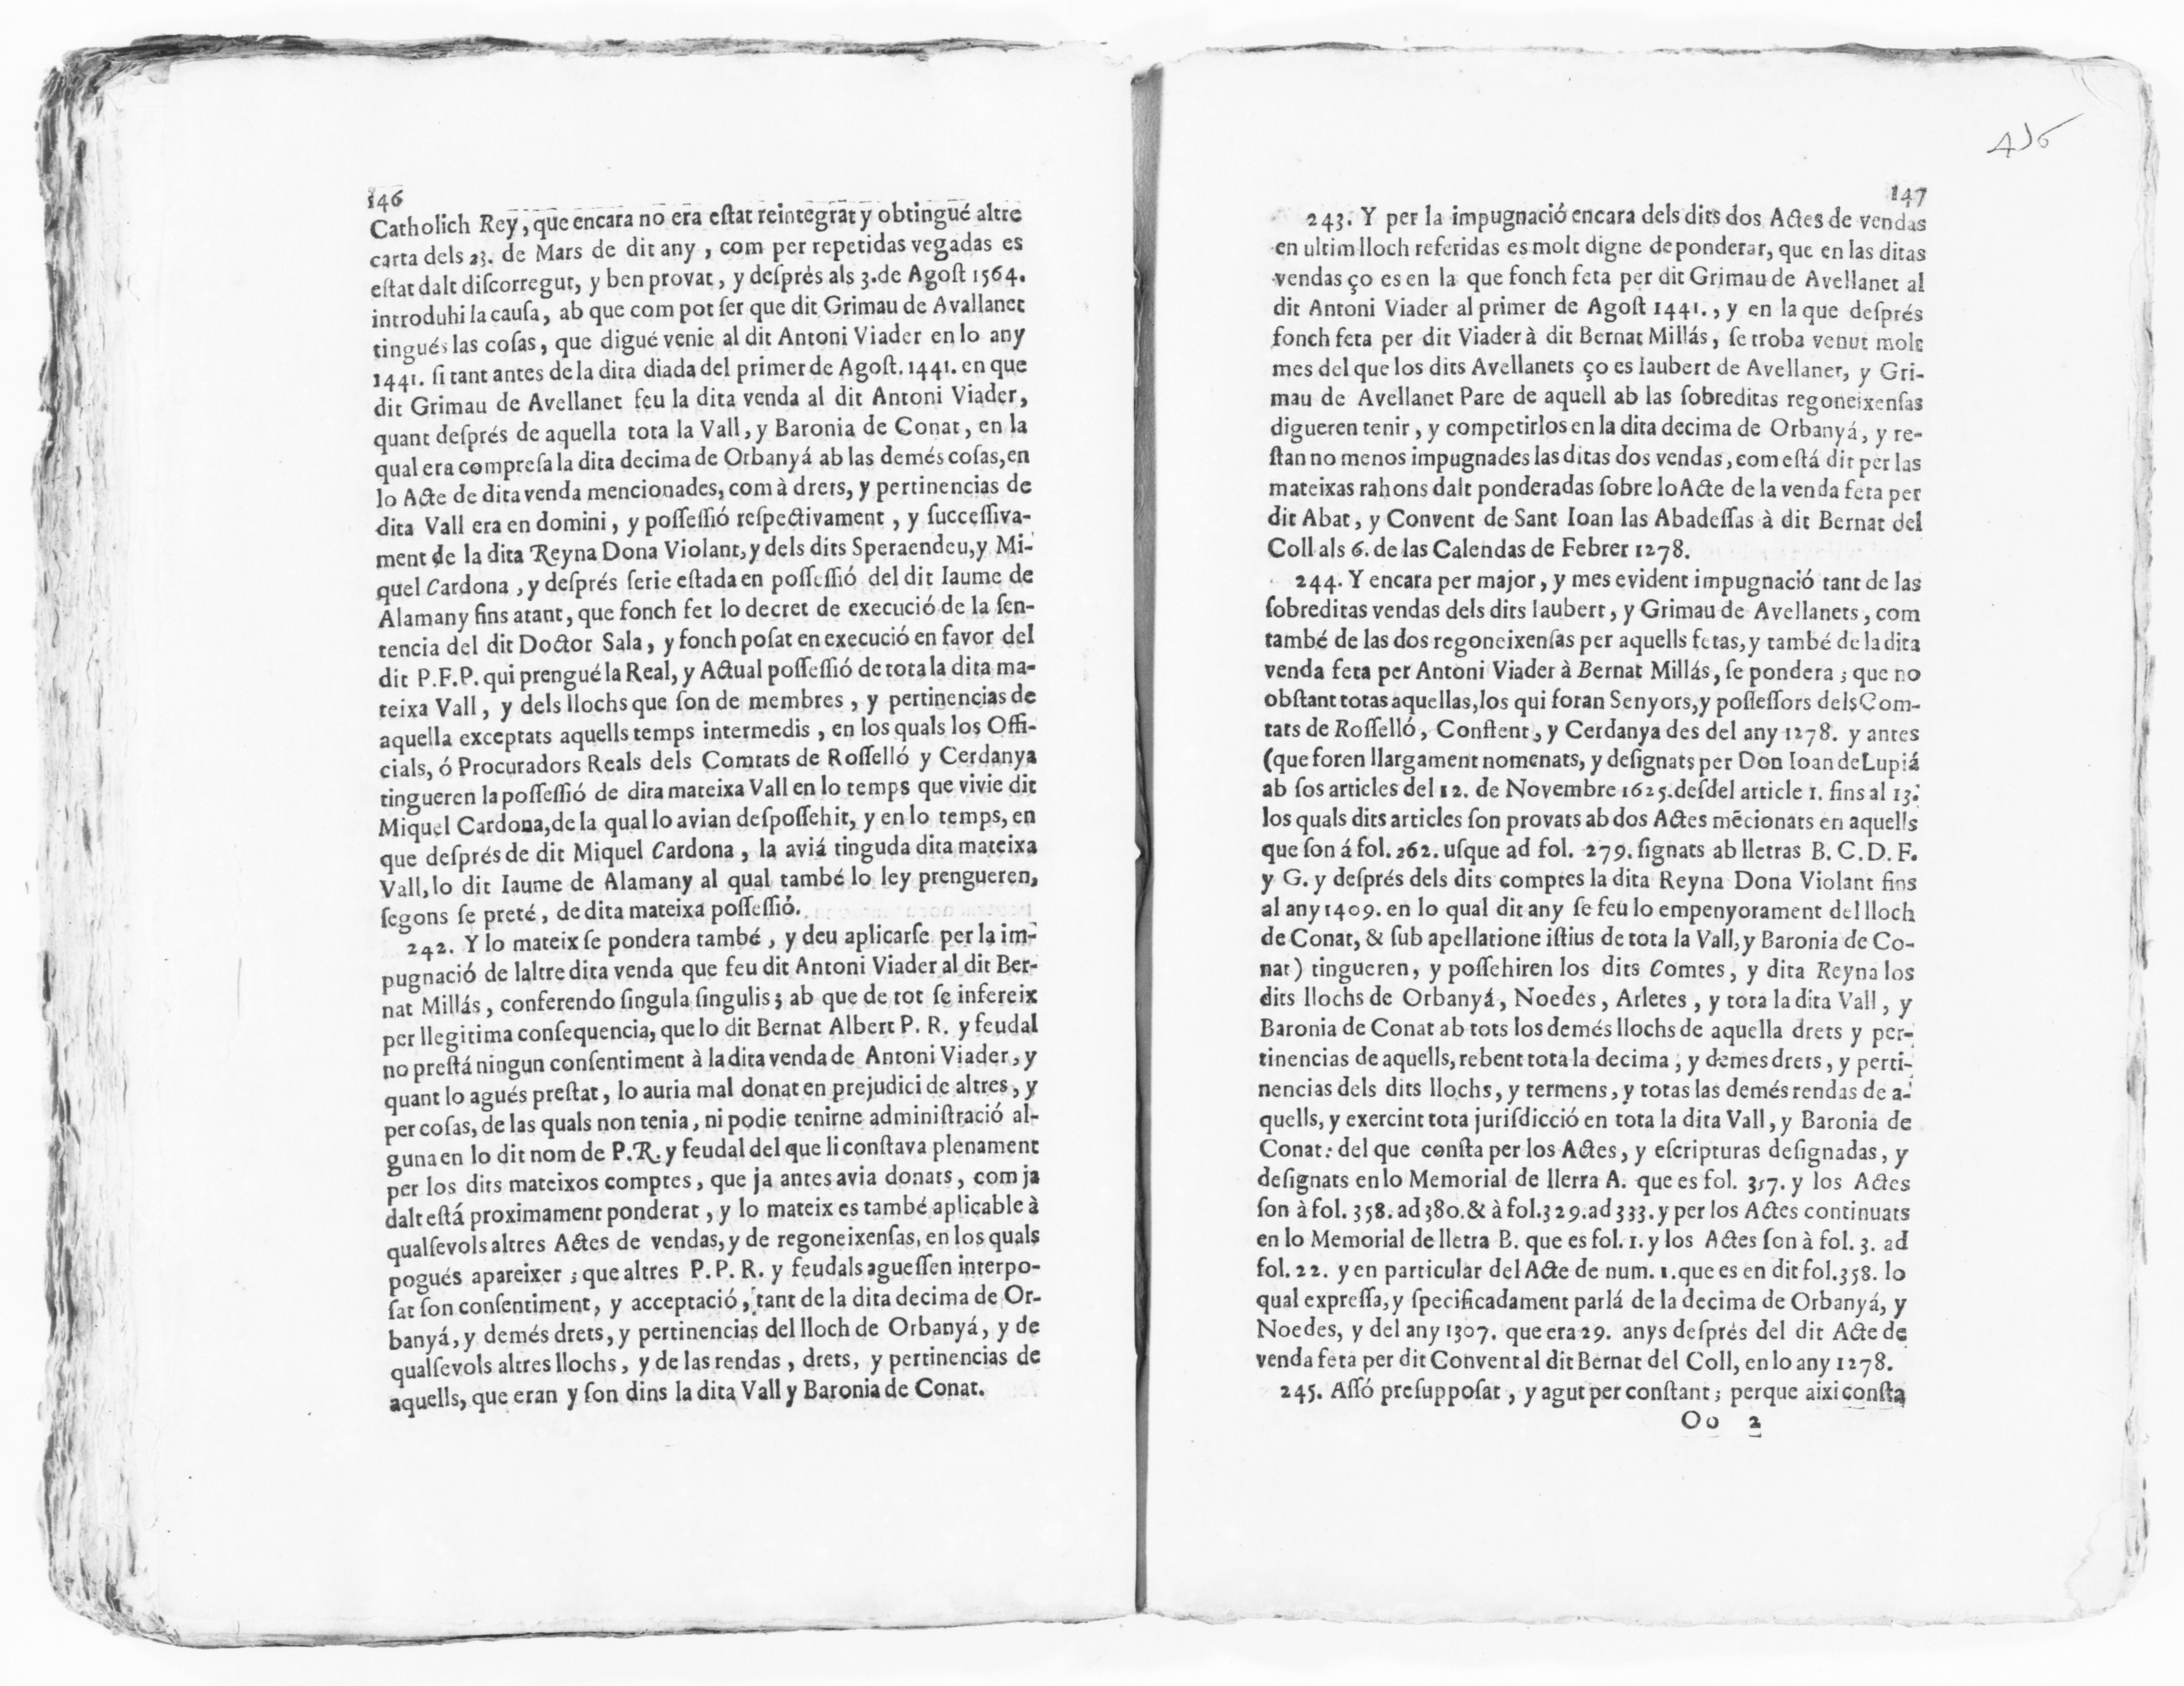 146
Catholich Rey, que encara no era eſtat reintegrat y obtingué altre
carta dels 23. de Mars de dit any , com per repetidas vegadas es
eſtat dalt diſcorregut, y ben provat, y deſprés als 3. de Agoſt 1564.
introduhi la cauſa, ab que com pot ſer que dit Grimau de Avallanet
tingués las coſas, que digué venie al dit Antoni Viader en lo any
1441. ſi tant antes de la dita diada del primer de Agoſt. 1441. en que
dit Grimau de Avellanet feu la dita venda al dit Antoni Viader,
quant deſprés de aquella tota la Vall, y Baronia de Conat, en la
qual era compreſa la dita decima de Orbanyá ab las demés coſas, en
lo Acte de dita venda mencionades, com à drets, y pertinencias de
dita Vall era en domini, y poſſeſſió reſpectivament , y ſucceſſiva-
ment de la dita Reyna Dona Violant, y dels dits Speraendeu, y Mi-
quel Cardona , y deſprés ſerie eſtada en poſſeſſió del dit Iaume de
Alamany fins atant, que fonch fet lo decret de execució de la ſen-
tencia del dit Doctor Sala, y fonch poſat en execució en favor del
dit P.F.P. qui prengué la Real, y Actual poſſeſſió de tota la dita ma-
teixa Vall, y dels llochs que ſon de membres , y pertinencias de
aquella exceptats aquells temps intermedis , en los quals los Offi-
cials, ó Procuradors Reals dels Comtats de Roſſelló y Cerdanya
tingueren la poſſeſſió de dita mateixa Vall en lo temps que vivie dit
Miquel Cardona, de la qual lo avian deſpoſſehit, y en lo temps, en
que deſprés de dit Miquel Cardona , la aviá tinguda dita mateixa
Vall, lo dit Iaume de Alamany al qual també lo ley prengueren,
ſegons ſe preté, de dita mateixa poſſeſſió.
242. Y lo mateix ſe pondera també , y deu aplicarſe per la im-
pugnació de laltre dita venda que feu dit Antoni Viader al dit Ber-
nat Millás , conferendo ſingula ſingulis; ab que de tot ſe infereix
per llegitima conſequencia, que lo dit Bernat Albert P. R. y feudal
no preſtá ningun conſentiment à la dita venda de Antoni Viader, y
quant lo agués preſtat, lo auria mal donat en prejudici de altres, y
per coſas, de las quals non tenia, ni podie tenirne adminiſtració al-
guna en lo dit nom de P.R. y feudal del que li conſtava plenament
per los dits mateixos comptes, que ja antes avia donats, com ja
dalt eſtá proximament ponderat, y lo mateix es també aplicable à
qualſevols altres Actes de vendas, y de regoneixenſas, en los quals
pogués apareixer ; que altres P. P. R. y feudals agueſſen interpo-
ſat ſon conſentiment, y acceptació, tant de la dita decima de Or-
banyá, y demés drets, y pertinencias del lloch de Orbanyá, y de
qualſevols altres llochs, y de las rendas , drets, y pertinencias de
aquells, que eran y ſon dins la dita Vall y Baronia de Conat.
147
243. Y per la impugnació encara dels dits dos Actes de vendas
en ultim lloch referidas es molt digne de ponderar, que en las ditas
vendas ço es en la que fonch feta per dit Grimau de Avellanet al
dit Antoni Viader al primer de Agoſt 1441., y en la que deſprés
fonch feta per dit Viader à dit Bernat Millás, ſe troba venut molt
mes del que los dits Avellanets ço es Iaubert de Avellaner, y Gri-
mau de Avellanet Pare de aquell ab las ſobreditas regoneixenſas
digueren tenir, y competirlos en la dita decima de Orbanyá, y re-
ſtan no menos impugnades las ditas dos vendas, com eſtá dit per las
mateixas rahons dalt ponderadas ſobre lo Acte de la venda feta per
dit Abat, y Convent de Sant Ioan las Abadeſſas à dit Bernat del
Coll als 6. de las Calendas de Febrer 1278.
244. Y encara per major, y mes evident impugnació tant de las
ſobreditas vendas dels dits Iaubert, y Grimau de Avellanets, com
també de las dos regoneixenſas per aquells fetas, y també de la dita
venda feta per Antoni Viader à Bernat Millás, ſe pondera ; que no
obſtant totas aquellas, los qui foran Senyors, y poſſeſſors dels Com-
tats de Roſſelló, Conflent, y Cerdanya des del any 1278. y antes
(que foren llargament nomenats, y deſignats per Don Ioan de Lupiá
ab ſos articles del 12. de Novembre 1625. deſdel article 1. fins al 13.
los quals dits articles ſon provats ab dos Actes mēcionats en aquells
que ſon á fol. 262. uſque ad fol. 279. ſignats ab lletras B. C. D. F.
y G. y deſprés dels dits comptes la dita Reyna Dona Violant fins
al any 1409. en lo qual dit any ſe feu lo empenyorament del lloch
de Conat, & ſub apellatione iſtius de tota la Vall, y Baronia de Co-
nat) tingueren, y poſſehiren los dits Comtes, y dita Reyna los
dits llochs de Orbanyá, Noedes, Arletes, y tota la dita Vall, y
Baronia de Conat ab tots los demés llochs de aquella drets y per-
tinencias de aquells, rebent tota la decima, y demes drets, y perti-
nencias dels dits llochs, y termens, y totas las demés rendas de a-
quells, y exercint tota juriſdicció en tota la dita Vall, y Baronia de
Conat: del que conſta per los Actes, y eſcripturas deſignadas, y
deſignats en lo Memorial de llerra A. que es fol. 357. y los Actes
ſon à fol. 358. ad 380. & à fol. 329. ad 333. y per los Actes continuats
en lo Memorial de lletra B. que es fol. 1. y los Actes ſon à fol. 3. ad
fol. 22. y en particular del Acte de num. 1. que es en dit fol. 358. lo
qual expreſſa, y ſpecificadament parlá de la decima de Orbanyá, y
Noedes, y del any 1307. que era 29. anys deſprés del dit Acte de
venda feta per dit Convent al dit Bernat del Coll, en lo any 1278.
245. Aſſó preſuppoſat, y agut per conſtant; perque aixi conſta
Oo 2